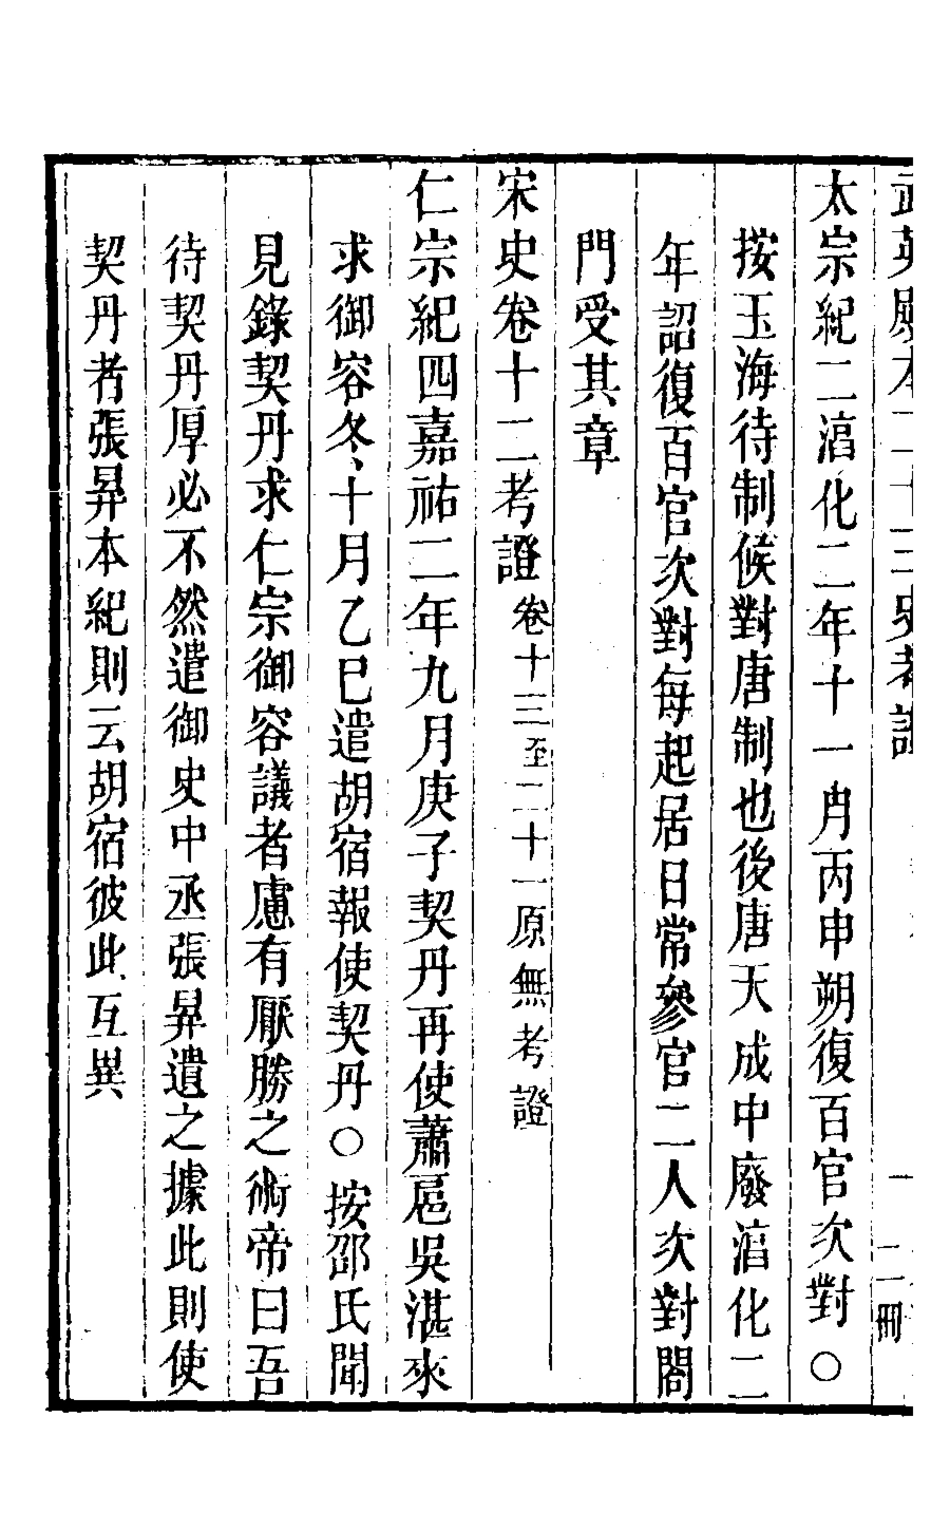 武英殿本二十三史考證 一 二一冊
太宗紀二湻化二年十一月丙申朔復百官次對○
按玉海待制候對唐制也後唐天成中廢湻化二
年詔復百官次對每起居日常參官二人次對閣
門受其章
宋史卷十二考證 卷十三至二十一原無考證
仁宗紀四嘉祐二年九月庚子契丹再使蕭扈吳湛來
求御容冬十月乙巳遣胡宿報使契丹○按邵氏聞
見錄契丹求仁宗御容議者慮有厭勝之術帝曰吾
待契丹厚必不然遣御史中丞張昪遺之據此則使
契丹者張昪本紀則云胡宿彼此互異